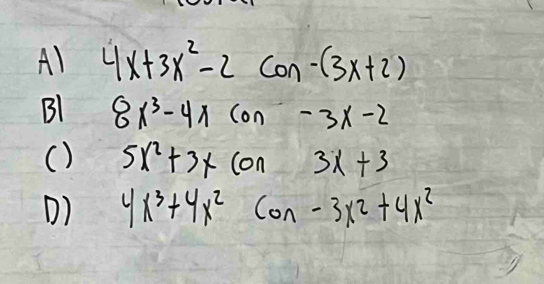 A) 4x+3x²-2 con -(3x+2)
B) 8x³-4x con -3x-2
C) 5x²+3x con 3x+3
D) 4x³+4x² con -3x²+4x²